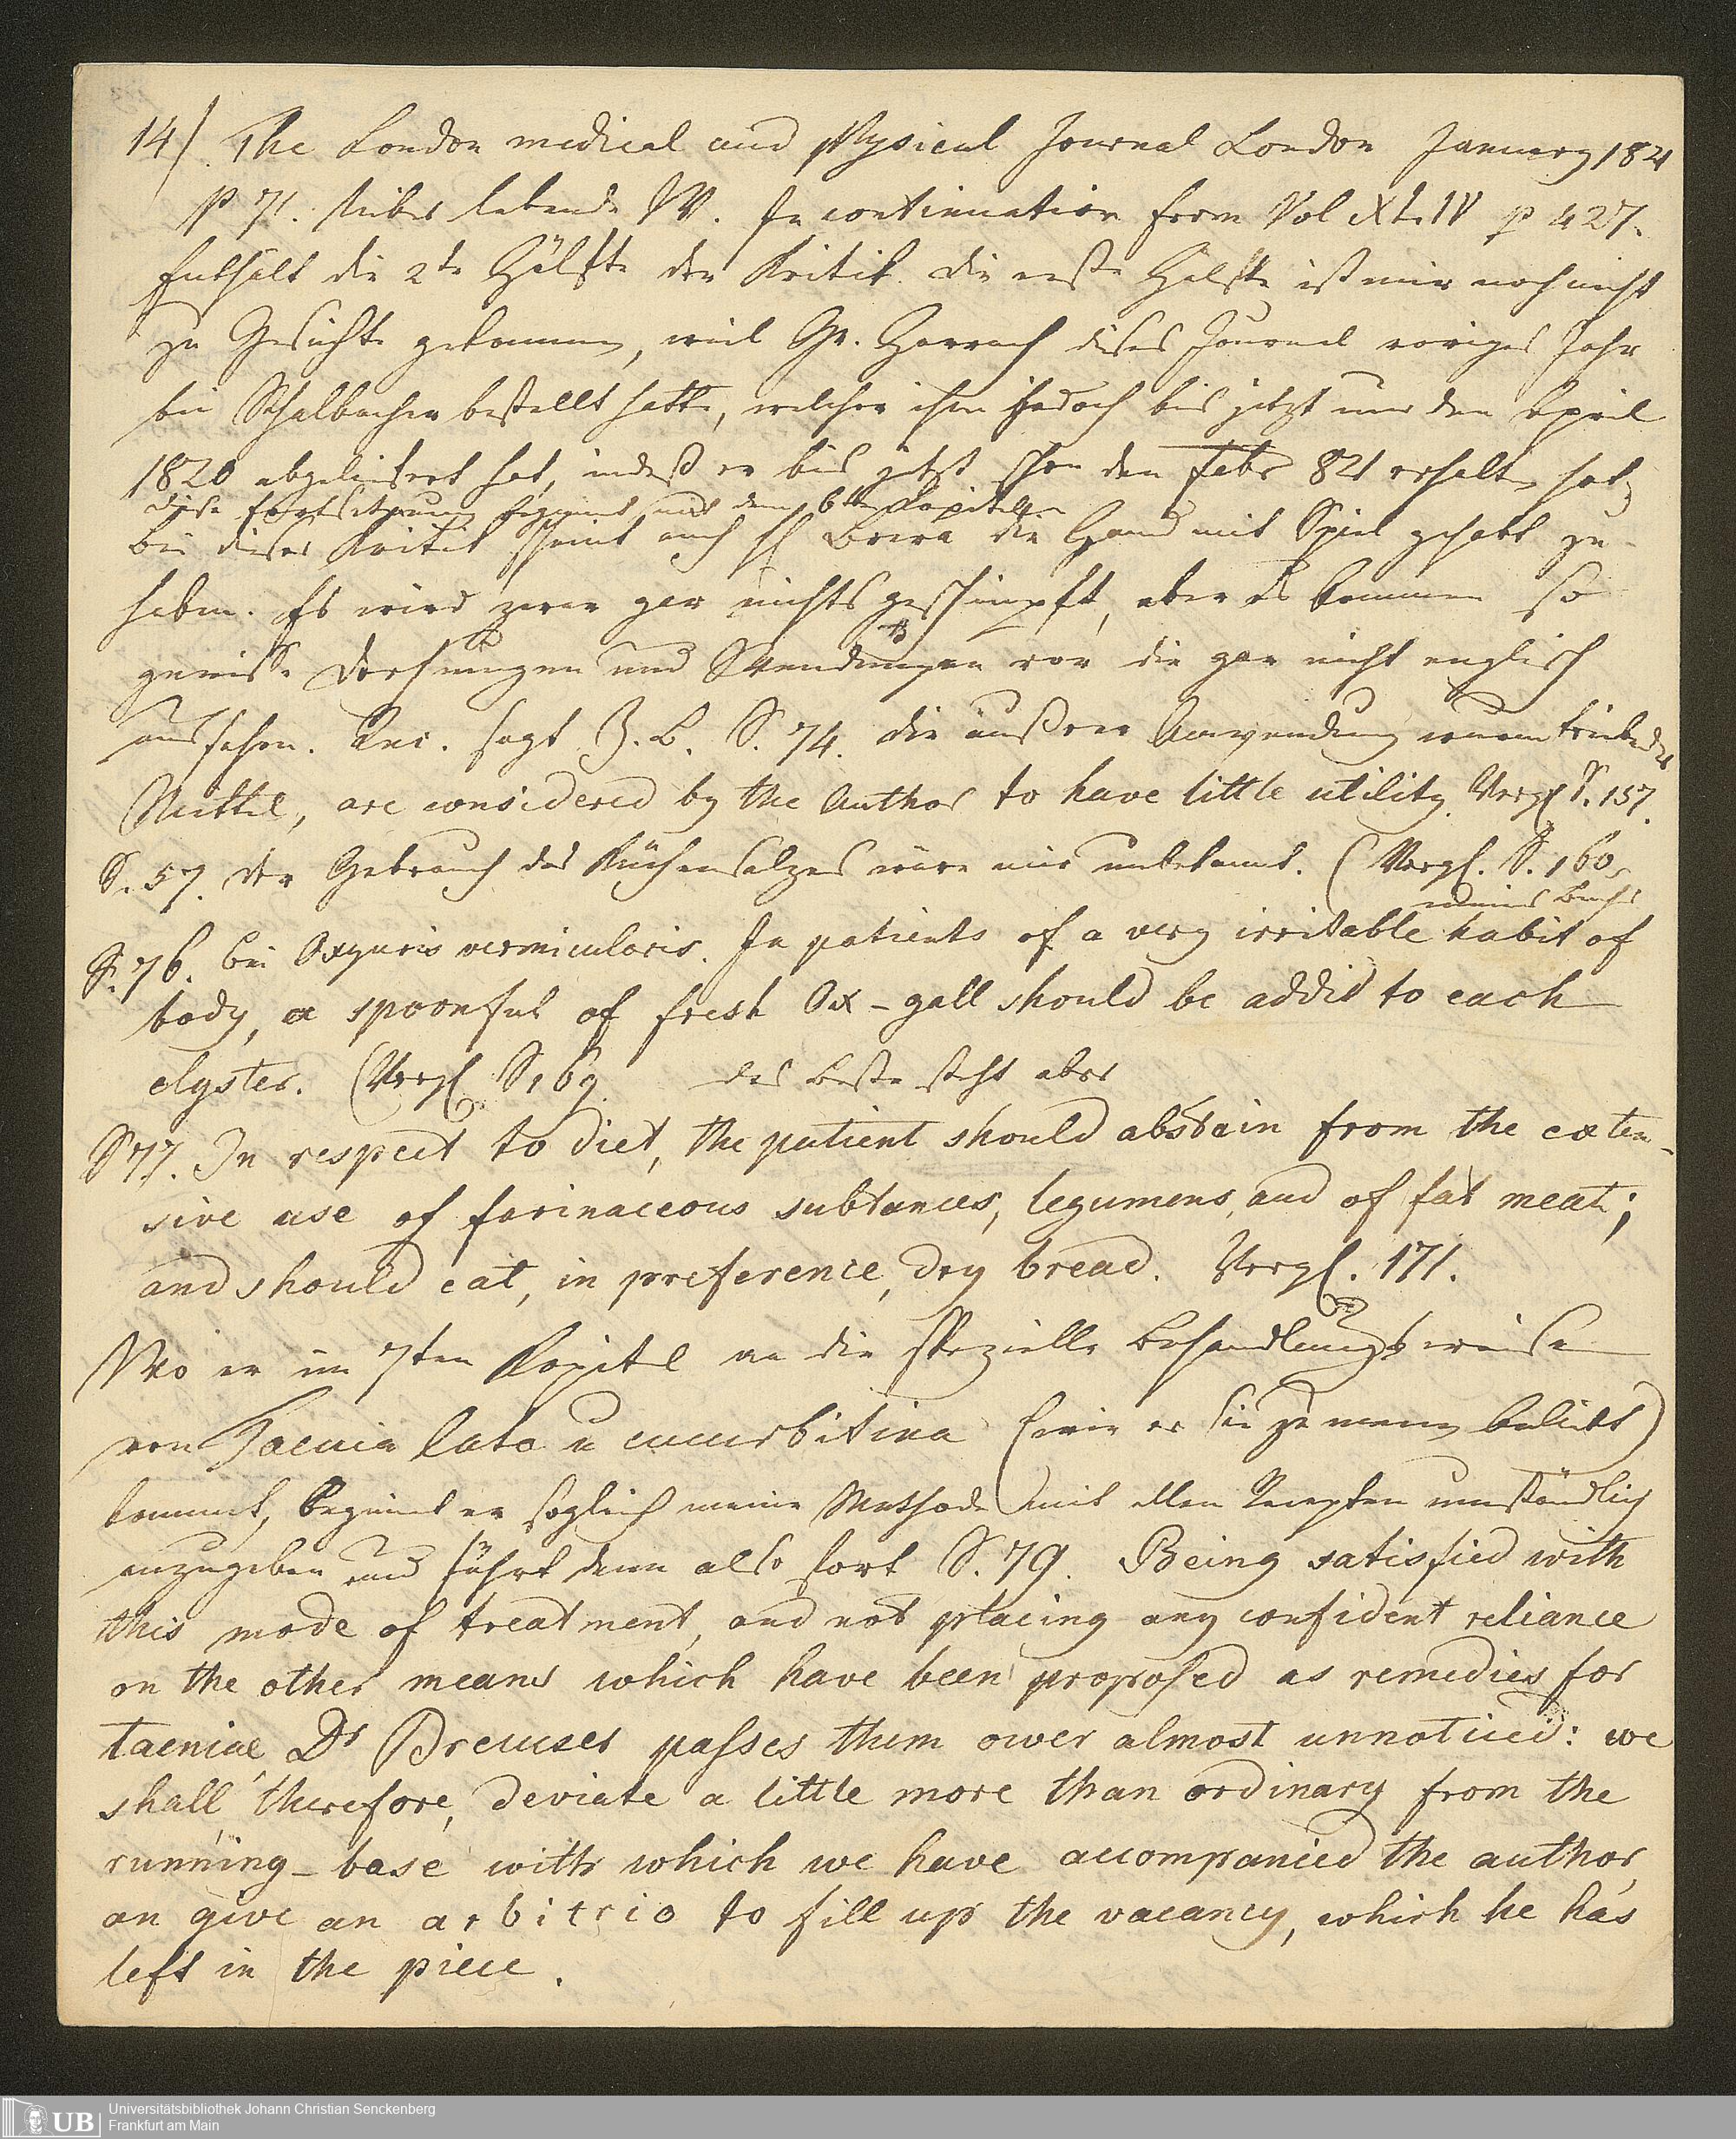 14) The London medical and physical Journal London January 1821
p 71. über lebende W. In continuation from Vol XLIV p 427.
Enthält die 2te Hälfte der Kritik. die erste Hälfte ist mir noch nicht
zu Gesichte gekommen, weil Gr. Harrach dieses Journal voriges Jahr
bei Schalbacher bestellt hatte, welcher ihm jedoch bis jetzt nur den April
1820 abgeliefert hat, indeß er bis jetzt schon den Febr 821 erhalten hat
diese Fortsetzung beginnt mit dem 6ten Kapitel
Bei dieser Kritik scheint auch H Brera die Hand mit Spiel gehabt zu
haben. Es wird zwar gar nichts geschimpft, aber es kommen so
gewisse Drehungen und Wendungen vor die gar nicht englisch
aussehen. Rec. sagt Z. B. S. 74. die äußere Anwendung wurmtreibender
Mittel, are considered by the Author to have little utility. Vergl S. 157.
S. 57. der Gebrauch des Küchensalzes wäre mir unbekannt. (Vergl. S. 160,
meines Buchs
S. 76. bei Oxyuris vermicularis. In patients of a very irritable habit of
body, a spoonful of fresh Ox-gall should be addid to each
clyster. (Vergl S 169. das Beste steht aber
S 77. In respect to diet, the patient should abstain from the exten-
sive use of farinaceous subtances, legumens, and of fat meat;
and should eat, in preference, dry bread. Vergl. 171.
Wo er im 7ten Kapitel an die spezielle Behandlungsweise
von Taenia lata u cucurbitina (wie er sie zu nennen beliebt)
kommt, beginnt er sogleich meine Methode mit allen Recepten umständlich
anzugeben und fährt dann also fort S. 79. Being satisfied with
this mode of treatment, and not placing any confident reliance
on the other means which have been proposed as remedies for
taeniae, Dr Bremser passes them ower almost unnoticed: we
shall, therefore, deviate a little more than ordinary from the
running-base with which we have accompanied the author,
an give an arbitrio to fill up the vacancy, which he has
left in the piece.
UB
Universitätsbibliothek Johann Christian Senckenberg
Frankfurt am Main